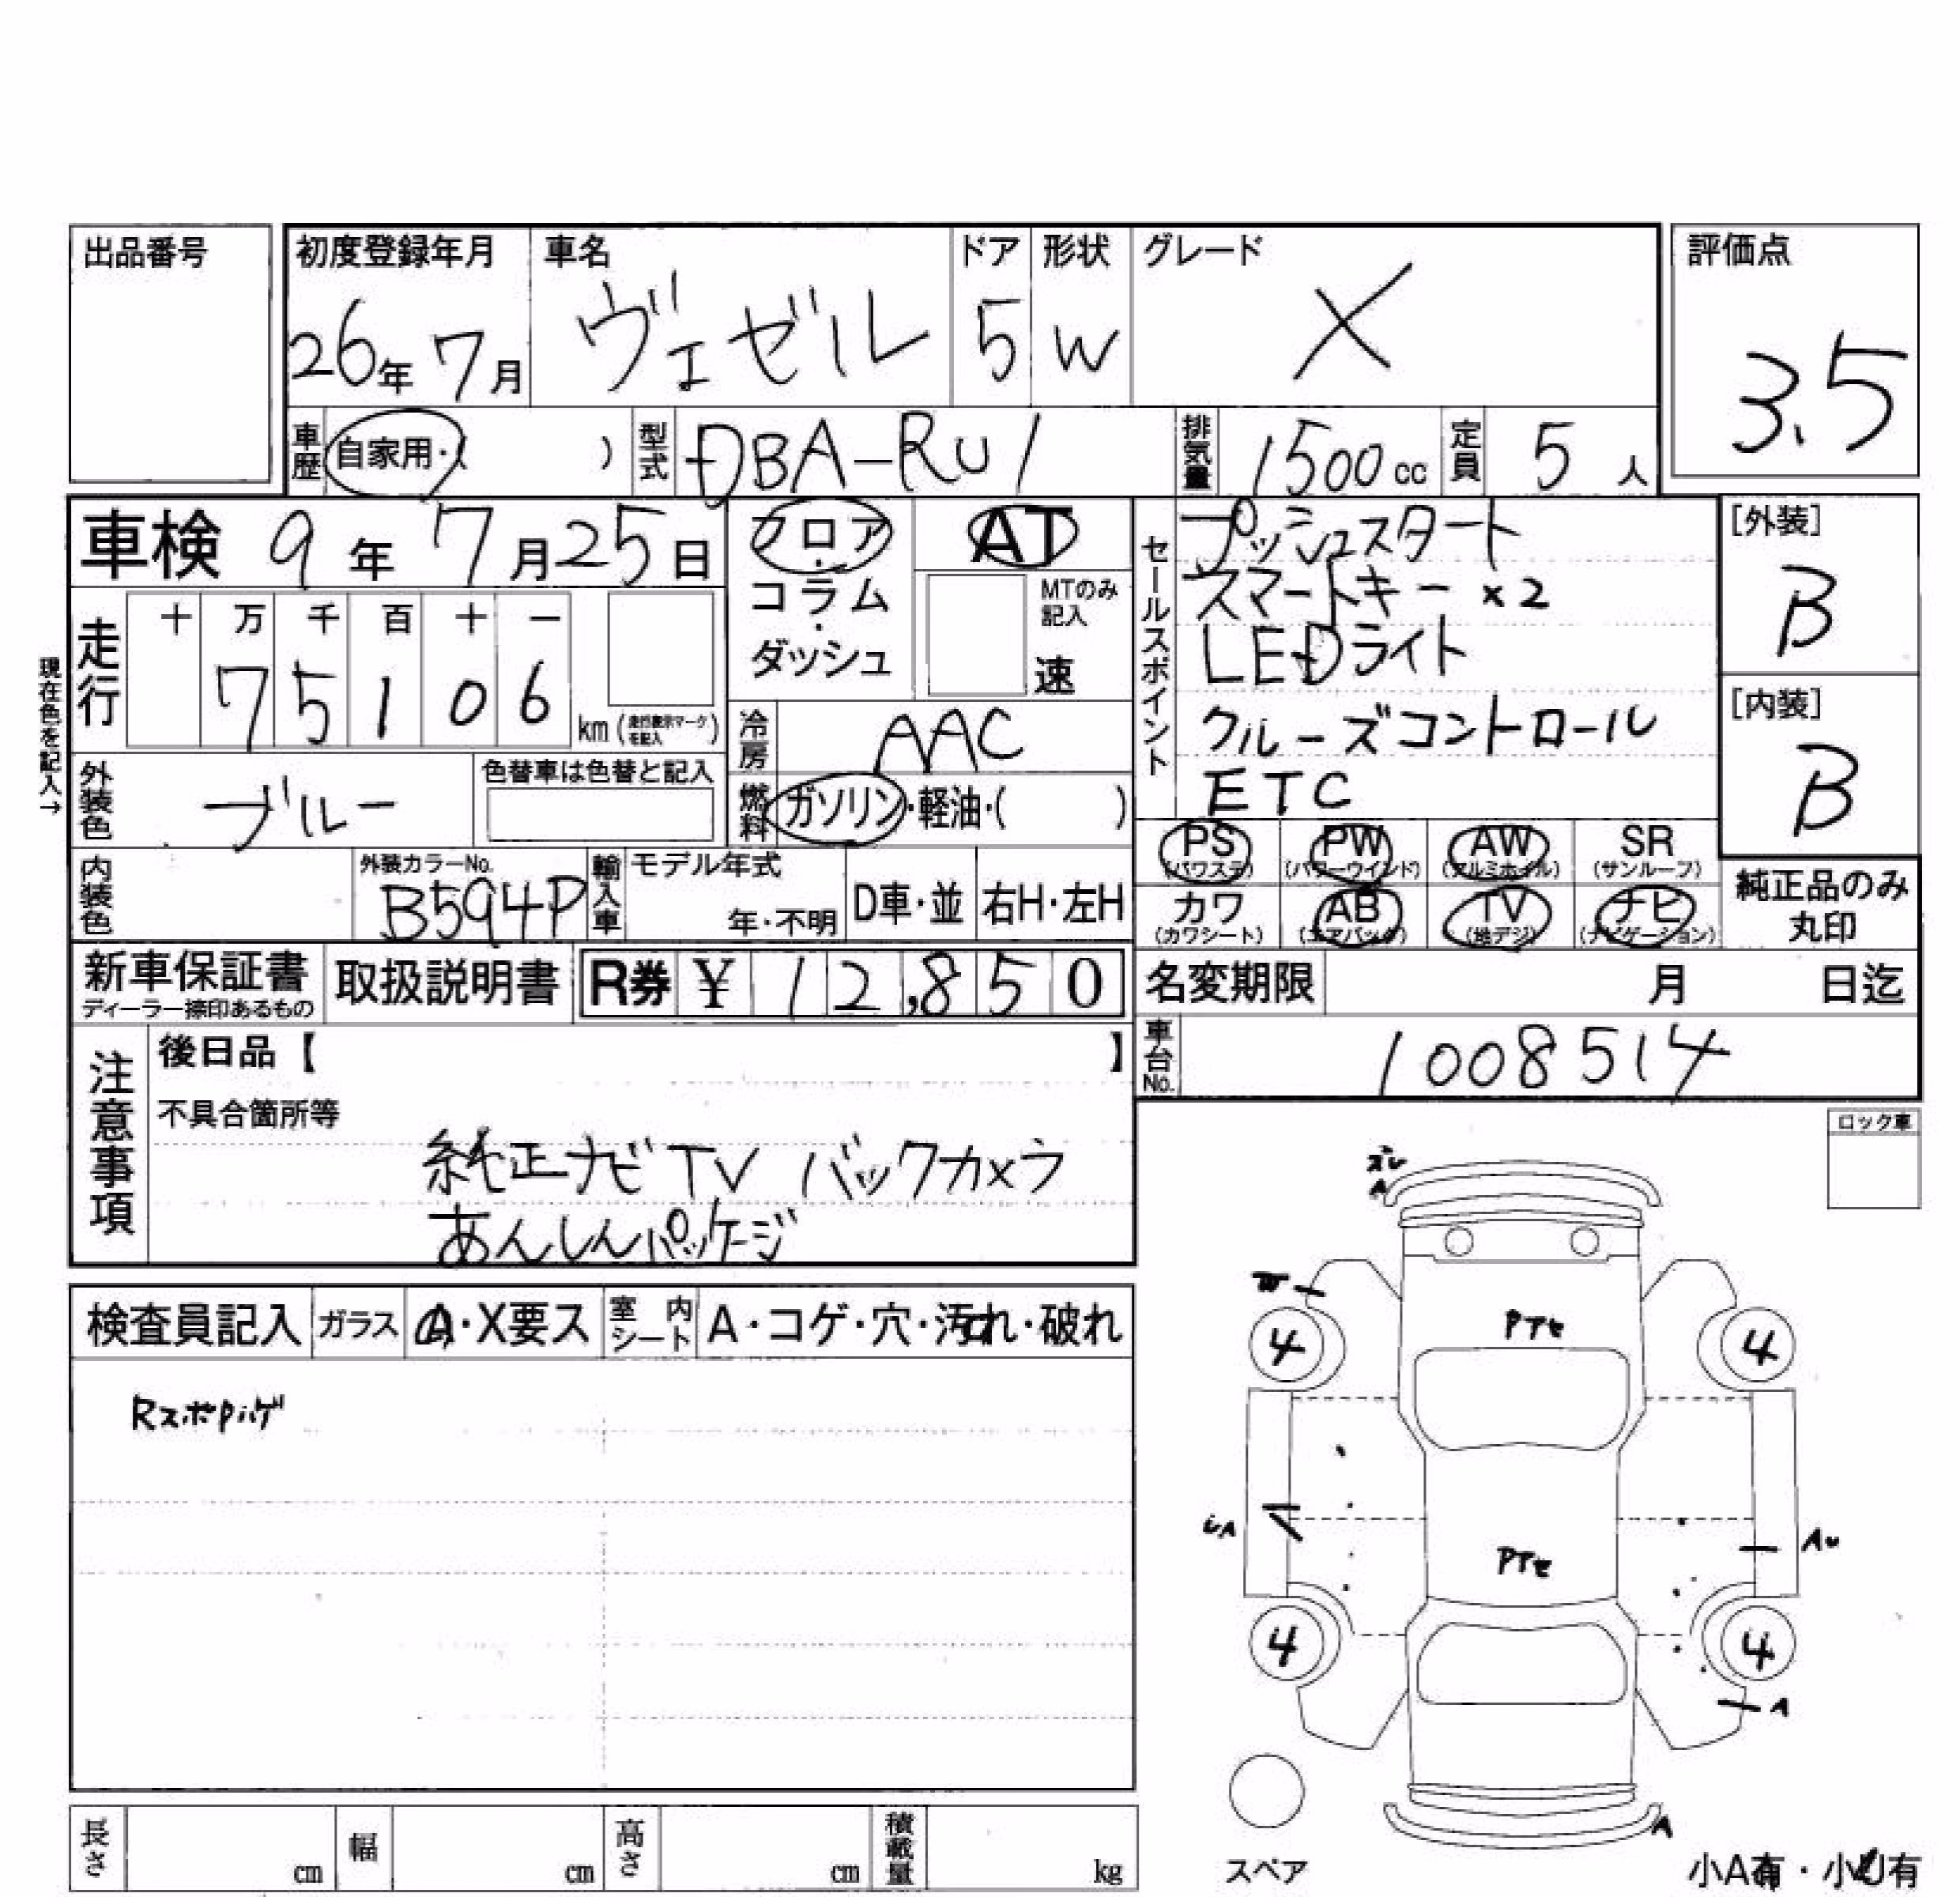 出品番号
初度登録年月 車名 ドア 形状 グレード 評価点
26年7月 ヴェゼル 5 W X 3.5
車歴 自家用・( ) 型式 DBA-RU1 排気量 1500cc 定員 5人
車検 9年7月25日 フロア・コラム・ダッシュ AT
MTのみ記入 速
セールスポイント
プッシュスタート
スマートキー×2
LEDライト
クルーズコントロール
ETC
[外装] B
[内装] B
現在色を記入→
走行 十 万 千 百 十 一
7 5 1 0 6 km(走行表示マークを記入)
冷房 AAC
外装色 ブルー 色替車は色替と記入
燃料 ガソリン・軽油・( )
PS (パワステ) PW (パワーウインド) AW (アルミホイル) SR (サンルーフ)
カワ (カワシート) AB (エアバック) TV (地デジ) ナビ (ナビゲーション)
純正品のみ丸印
内装色 外装カラーNo. B594P 輸入車 モデル年式 年・不明 D車・並 右H・左H
新車保証書 ディーラー捺印あるもの 取扱説明書 R券 ¥12,850
名変期限 月 日迄
車台No. 1008514
注意事項 後日品【 】
不具合箇所等
純正ナビTV バックカメラ
あんしんパッケージ
ロック車
検査員記入 ガラス A・X要ス 室内シート A・コゲ・穴・汚れ・破れ
RスポPハゲ
ズレ
A
W
PTセ
4 4
A
AU
PTセ
4 4
A
A
スペア
小A有・小U有
長さ cm 幅 cm 高さ cm 積載量 kg